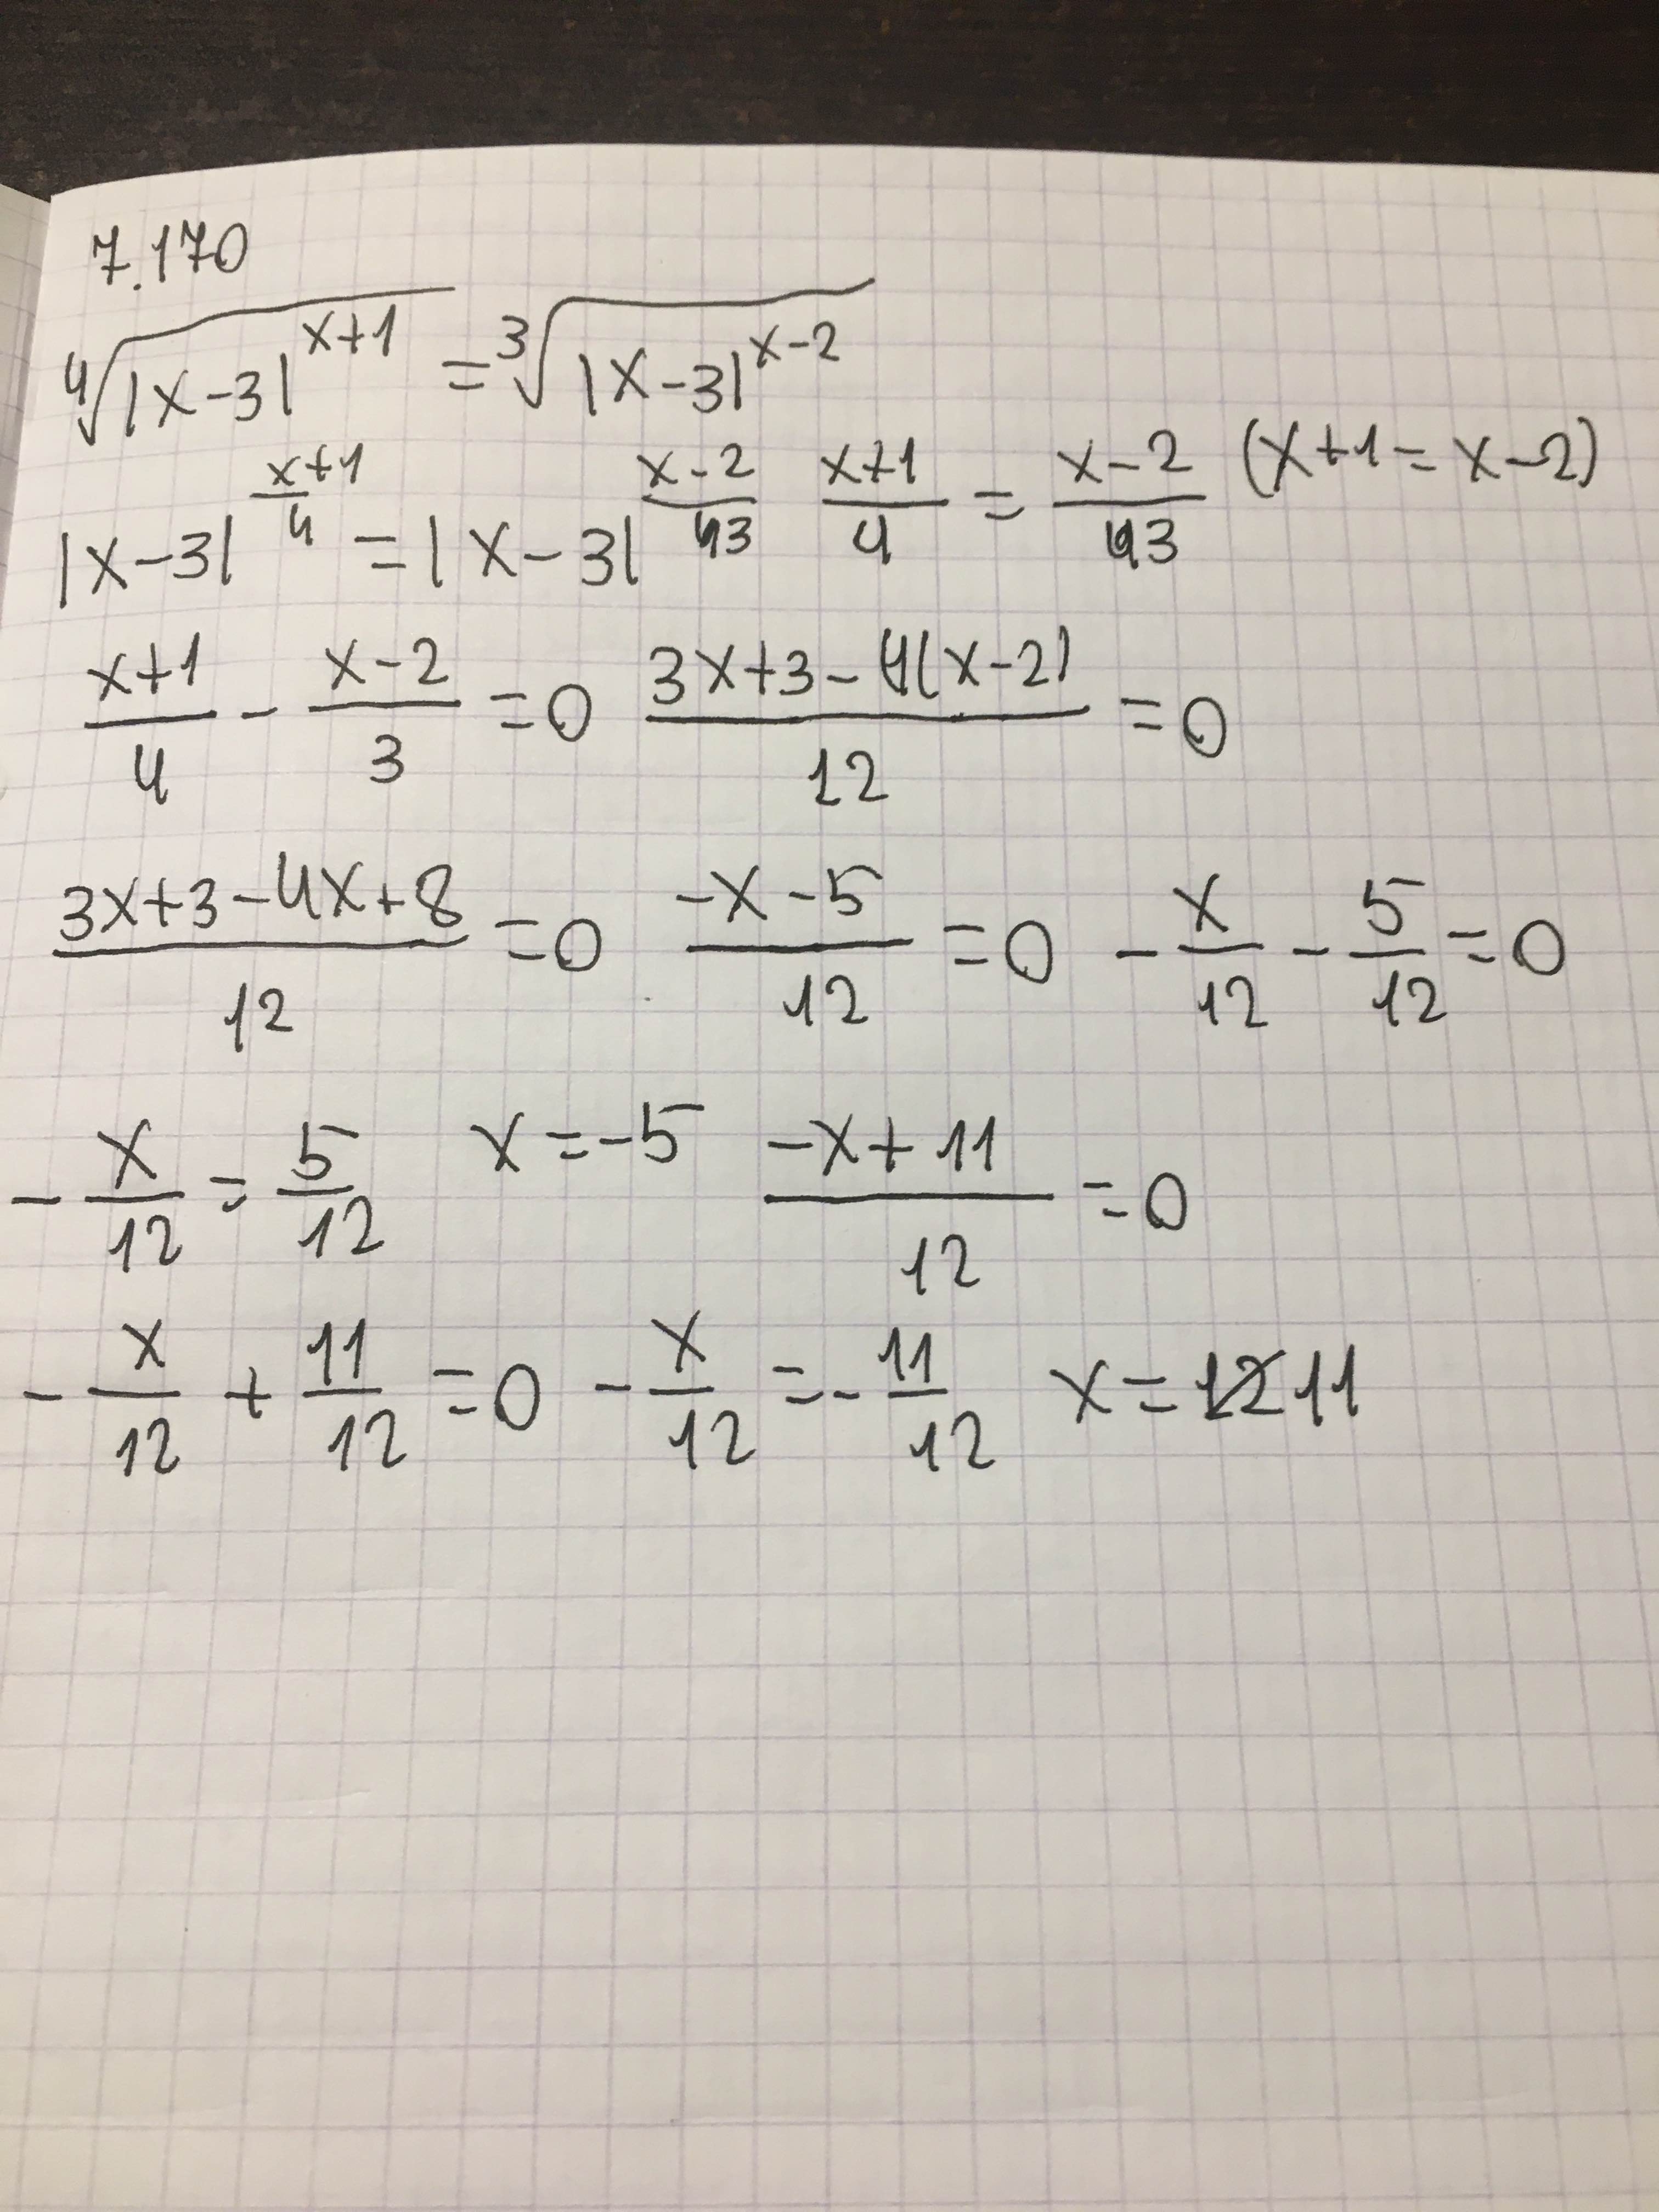 7.170
⁴√(|x-3|^(x+1)) = ³√(|x-3|^(x-2))
|x-3|^((x+1)/4) = |x-3|^((x-2)/3) (x+1)/4 = (x-2)/3 (x+1=x-2)
(x+1)/4 - (x-2)/3 = 0 (3x+3-4(x-2))/12 = 0
(3x+3-4x+8)/12 = 0 (-x-5)/12 = 0 -x/12 - 5/12 = 0
-x/12 = 5/12 x=-5 (-x+11)/12 = 0
-x/12 + 11/12 = 0 -x/12 = -11/12 x = 12 11